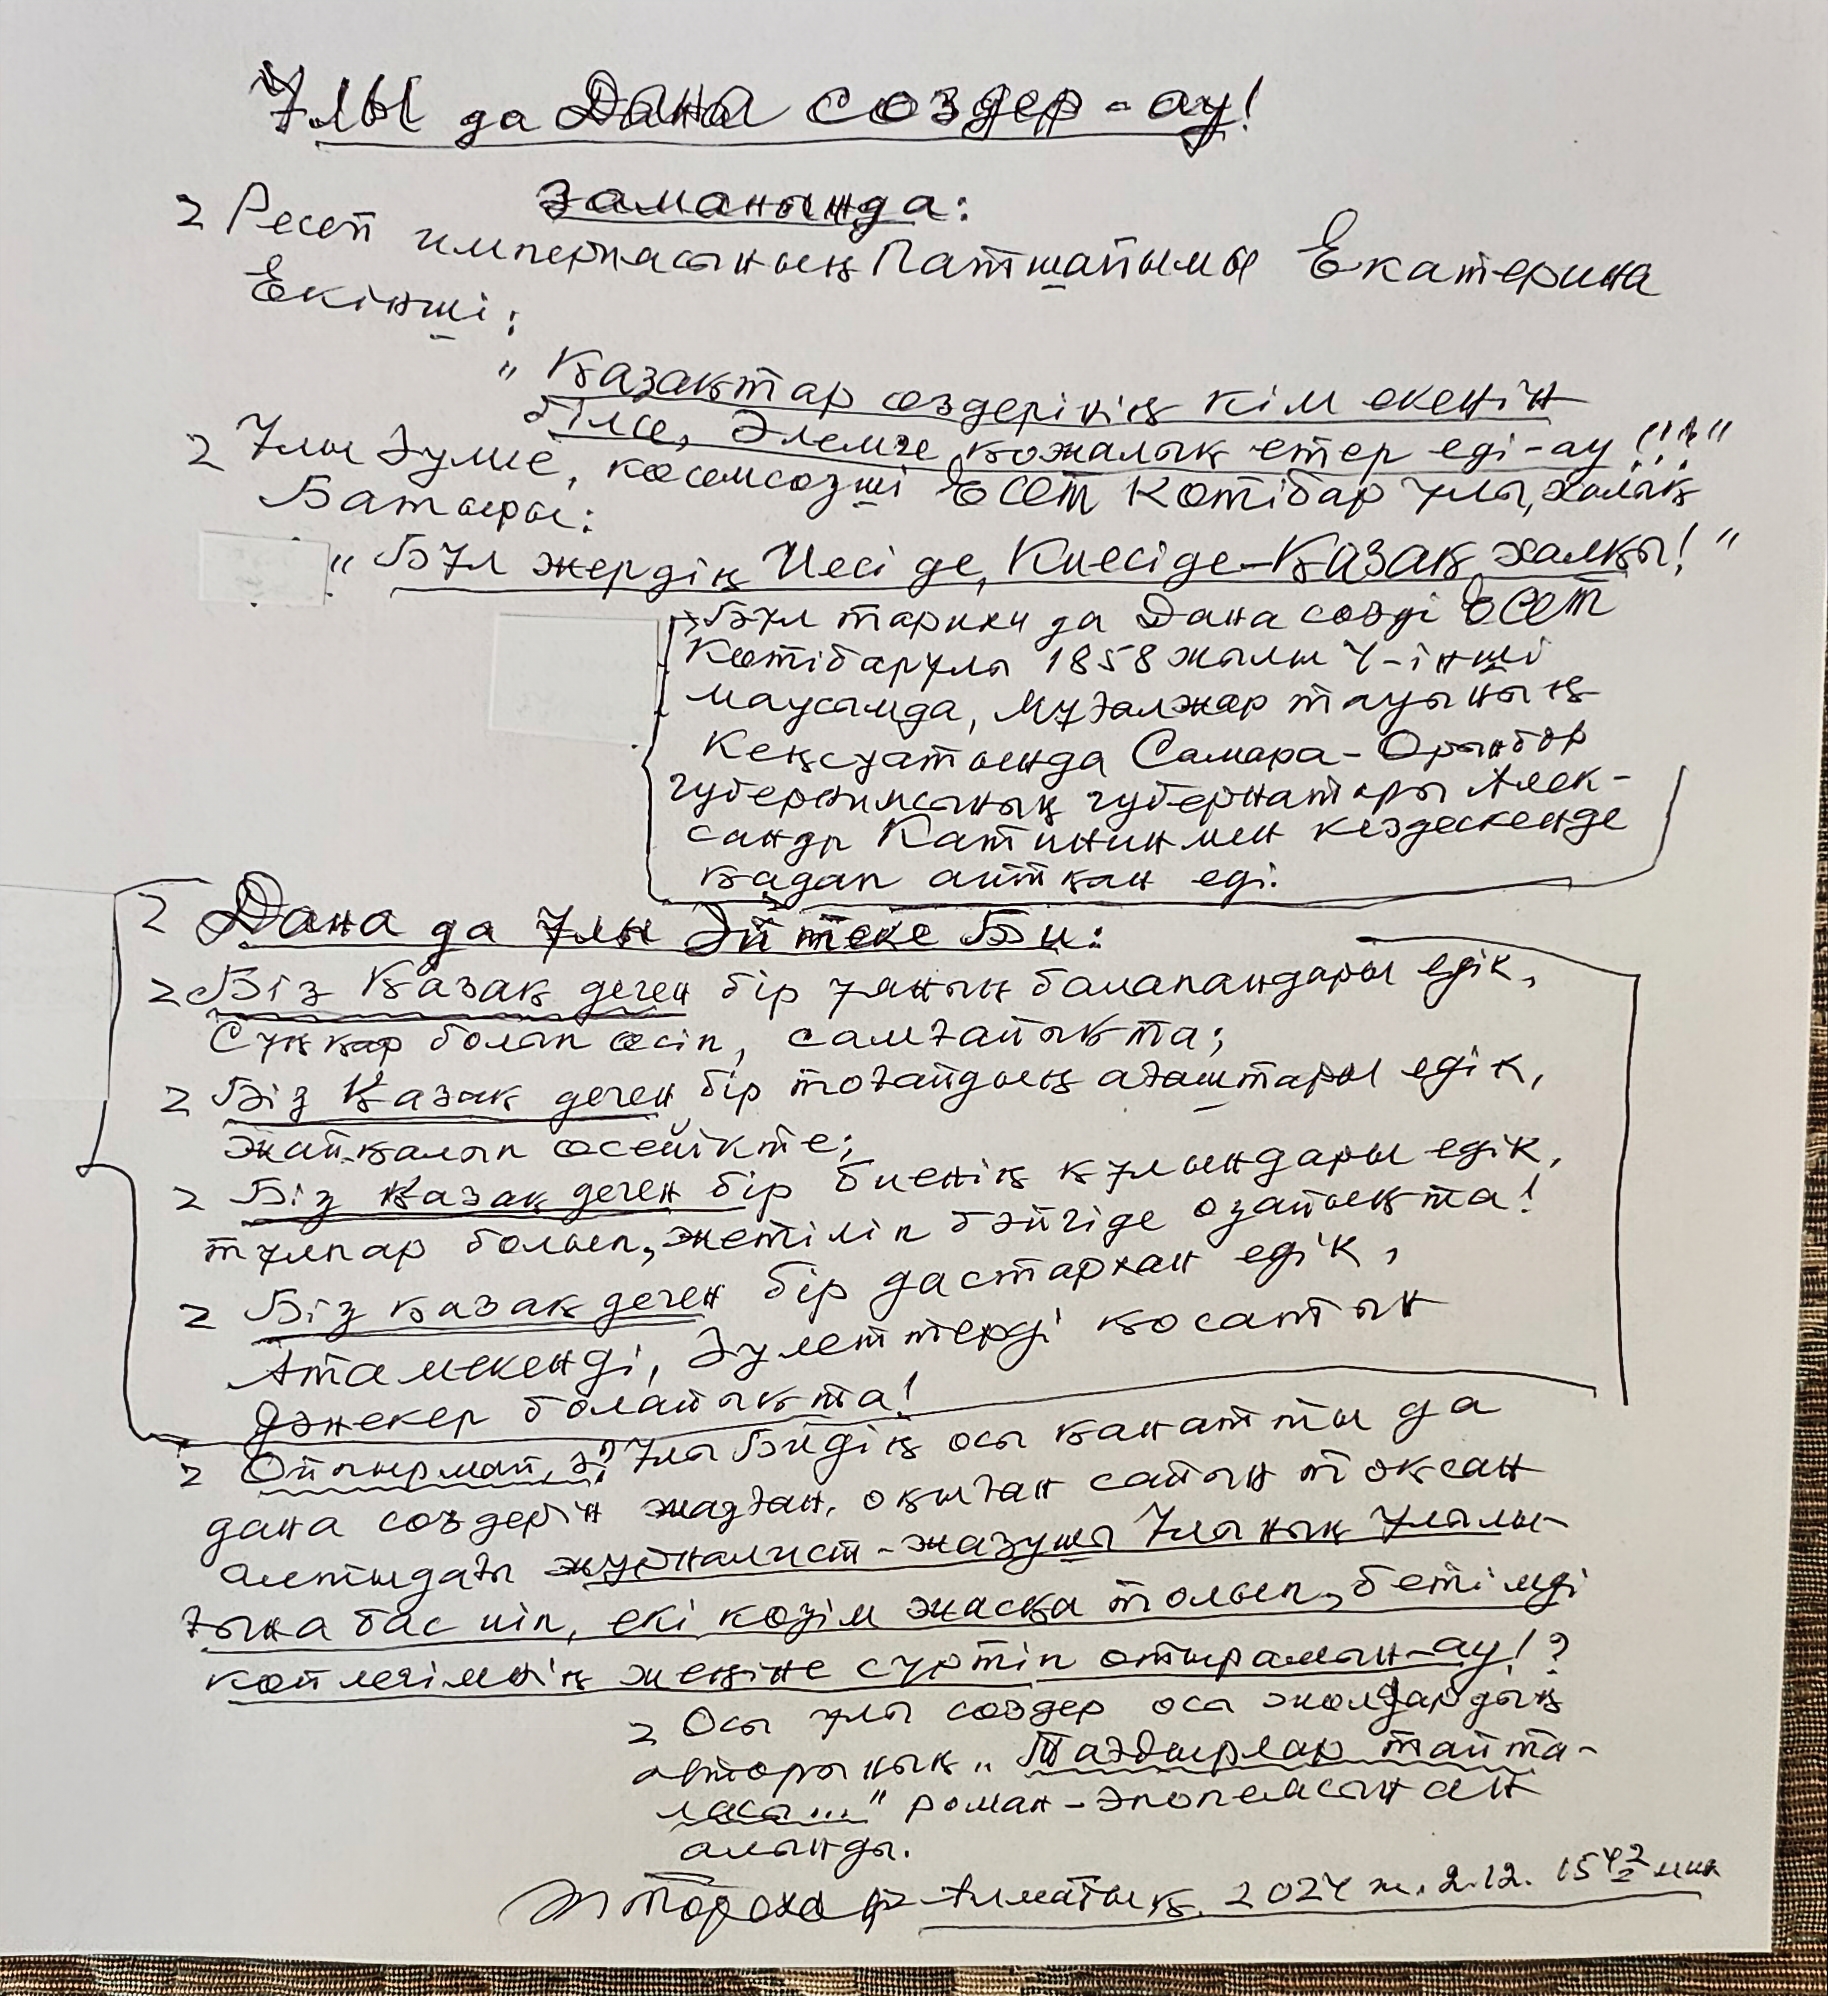 Ұлы да Дана сөздер-ау!
заманында:
Ресей империасының Патшайымы Екатерина
Екінші:
"Қазақтар өздерінің кім екенін
білсе, Әлемге қожалық етер еді-ау!!!"
Ұлы Әулие, көсемсөзші Есет Көтібар ұлы, халық
Батыры:
"Бұл жердің Иесі де, Киесі де-Қазақ халқы!"
Бұл тарихи да Дана сөзді Есет
Көтібарұлы 1858 жылы 4-інші
маусымда, Мұғалжар тауының
Кеңсуатында Самара-Орынбор
губерниясының губернаторы Алек-
сандр Катининмен кездескенде
қадап айтқан еді.
Дана да Ұлы Әйтеке Би:
Біз Қазақ деген бір ұяның балапандары едік,
Сұңқар болып өсіп, самғайықта;
Біз Қазақ деген бір тоғайдың ағаштары едік,
жайқалып өсейікте;
Біз Қазақ деген бір биенің құлындары едік,
тұлпар болып, жетіліп бәйгіде озайықта!
Біз қазақ деген бір дастархан едік,
Атамекенді, Әулеттерді қосатын
дәнекер болайықта!
Ойпырмай, ә? Ұлы Бидің осы қанатты да
дана сөздерін жазған, оқыған сайын тоқсан
алтыдағы журналист-жазушы Ұлының ұлылы-
ғына бас иіп, екі көзім жасқа толып, бетімді
көйлегімнің жеңіне сүртіп отырамын-ау!?
Осы ұлы сөздер осы жолдардың
авторының "Тағдырлар тайта-
ласы..." роман-эпопеясынан
алынды.
Алматы қ. 2024 ж. 2.12. 15 42 мин